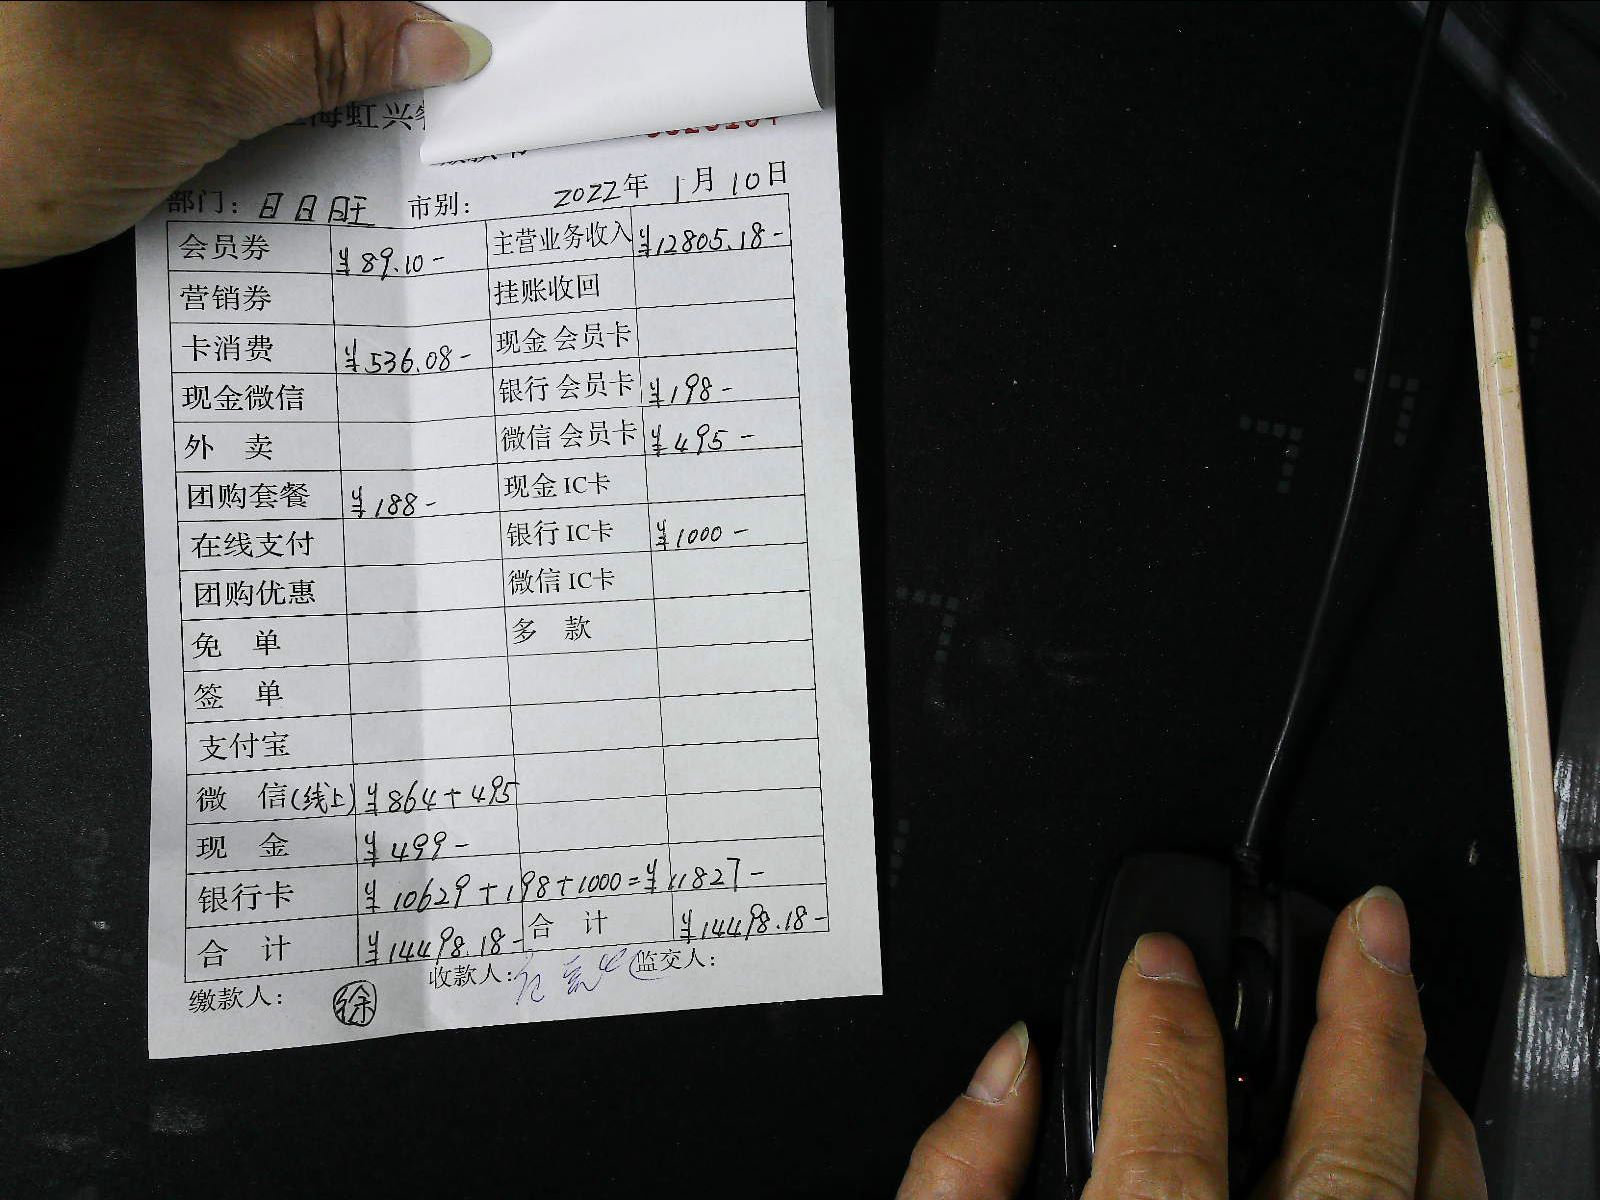 海虹兴
部门: 日日旺 市别: 2022年 1月 10日
会员券 ¥89.10- 主营业务收入 ¥12805.18-
营销券 挂账收回
卡消费 ¥536.08- 现金 会员卡
现金微信 银行 会员卡 ¥198-
外 卖 微信 会员卡 ¥495-
团购套餐 ¥188- 现金 IC卡
在线支付 银行 IC卡 ¥1000-
团购优惠 微信 IC卡
免 单 多 款
签 单
支付宝
微 信(线上) ¥864+495
现 金 ¥499-
银行卡 ¥10629+198+1000=¥11827-
合 计 ¥14498.18- 合 计 ¥14498.18-
缴款人: 徐 收款人: 监交人: